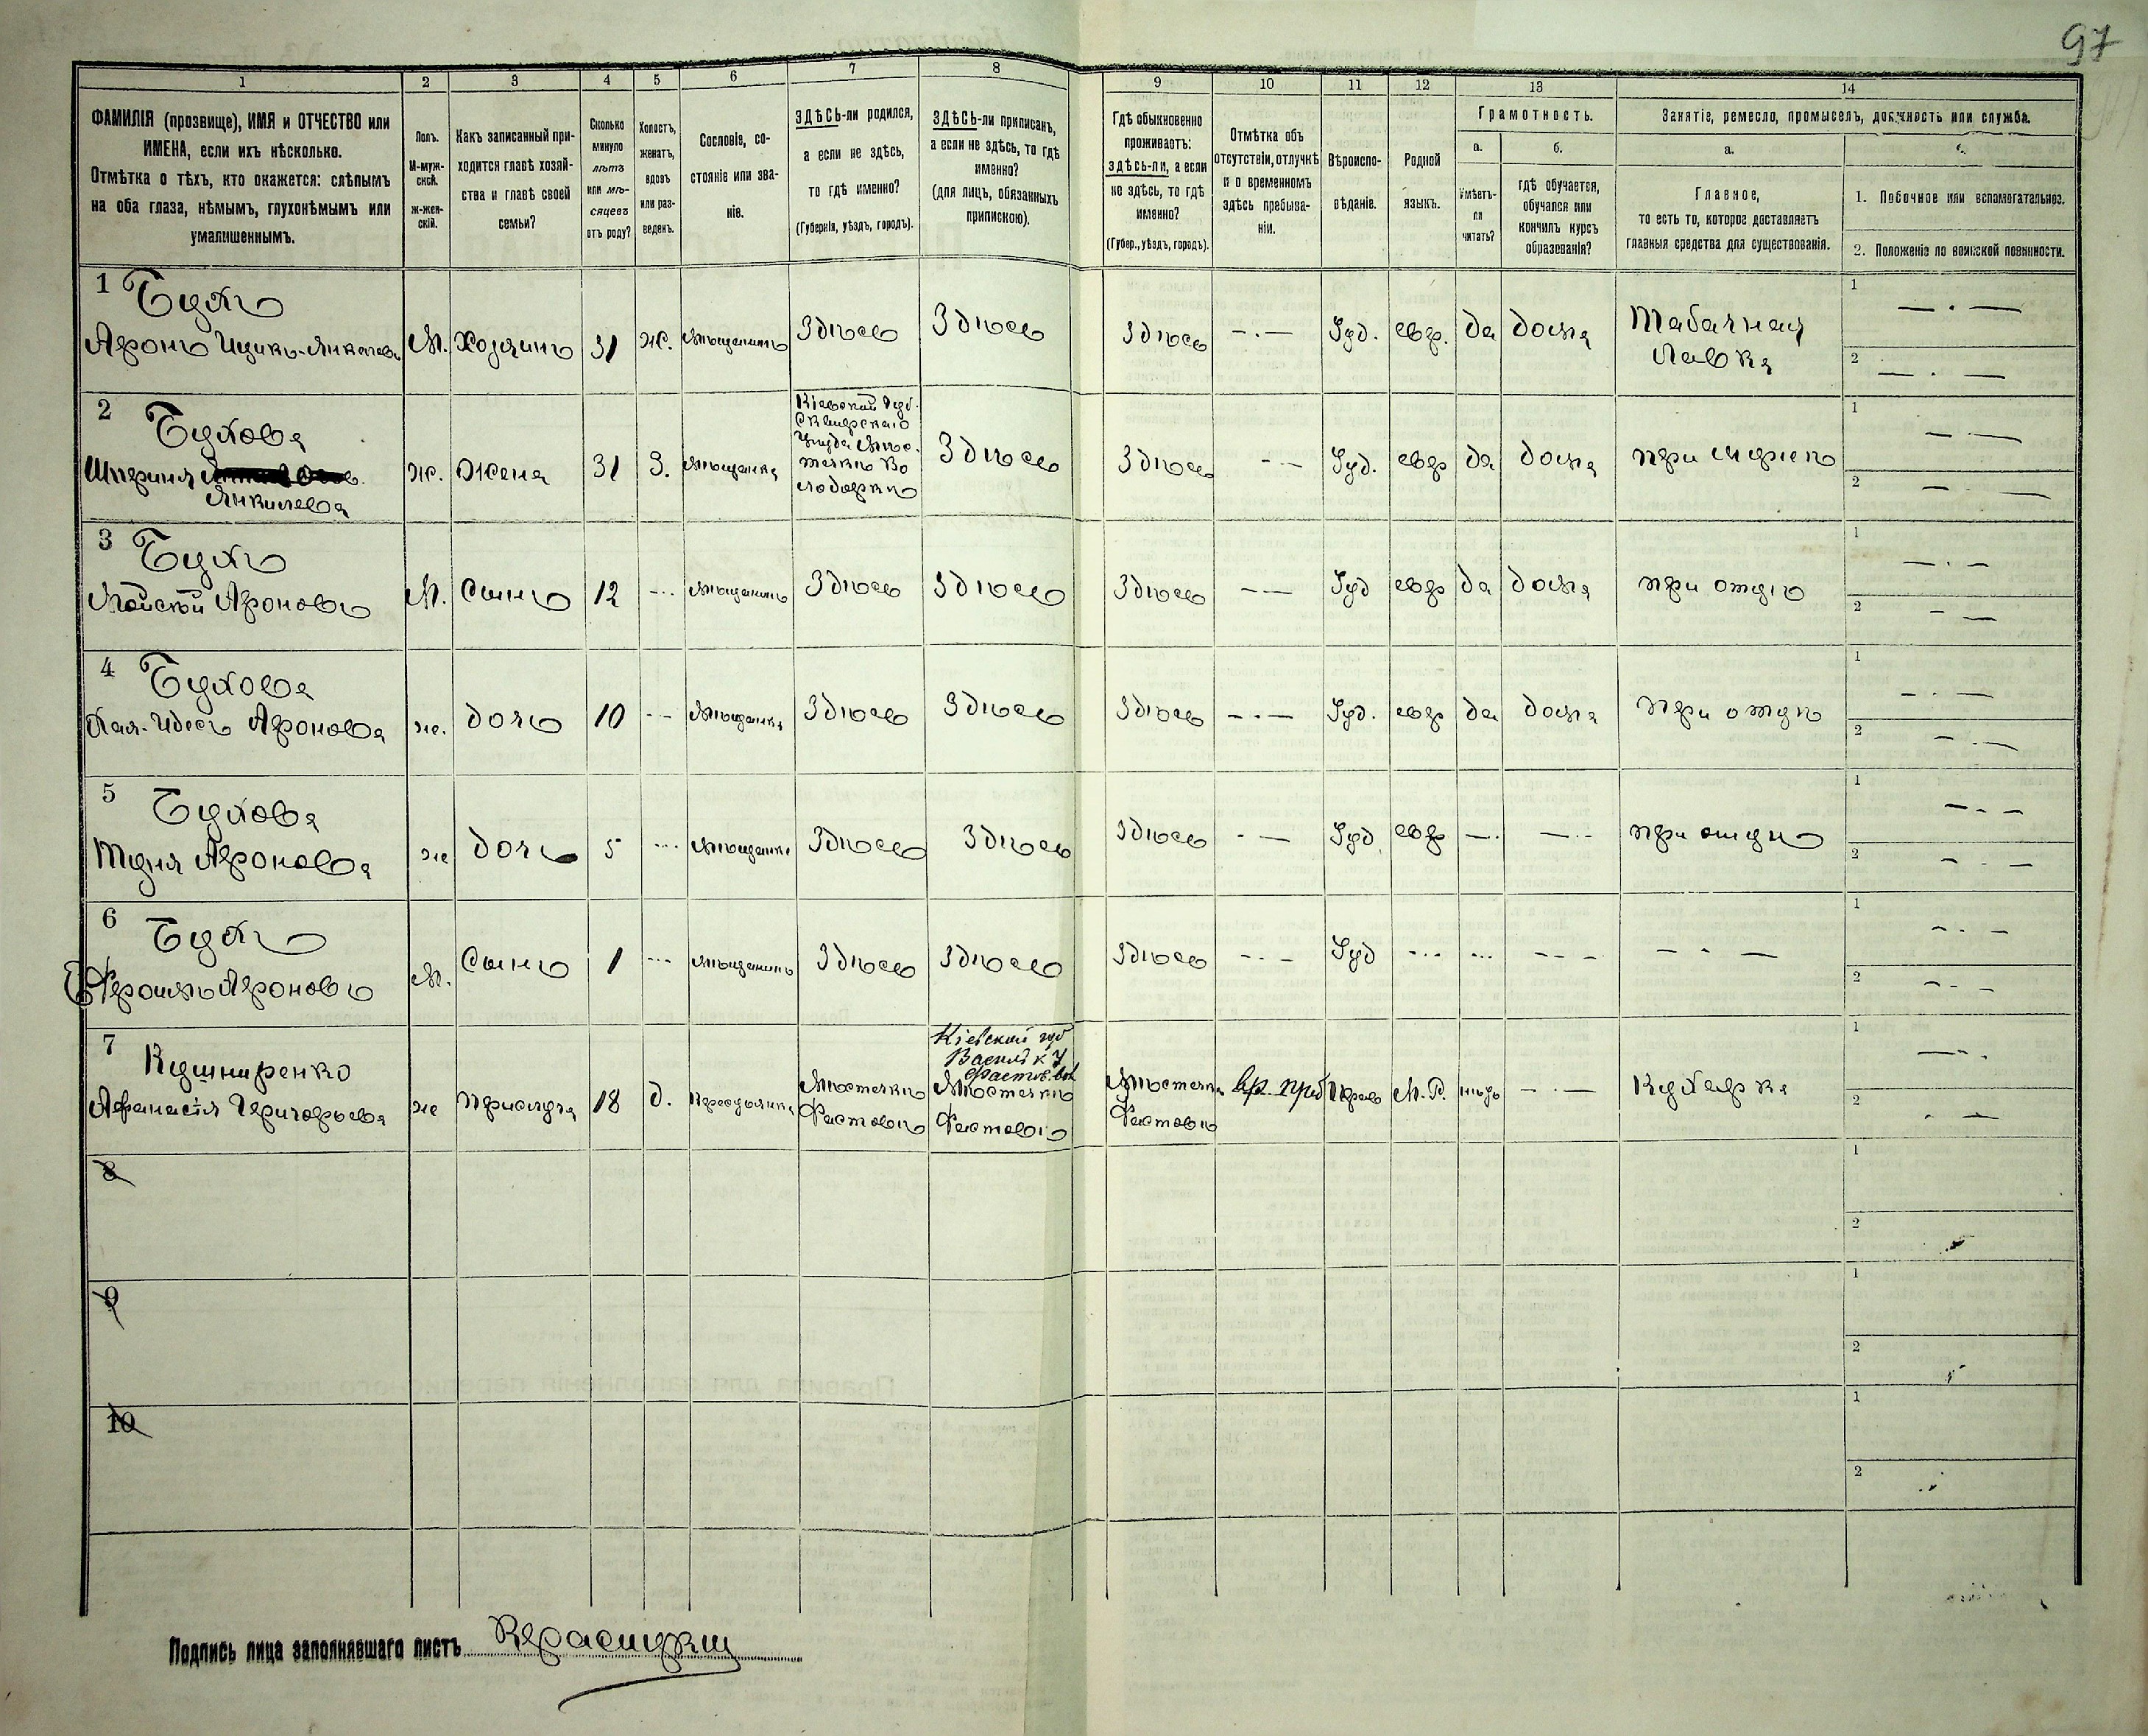 97
1 2 3 4 5 6 7 8 9 10 11 12 13 14
ФАМИЛІЯ (прозвище), ИМЯ и ОТЧЕСТВО или
ИМЕНА, если ихъ нѣсколько.
Отмѣтка о тѣхъ, кто окажется: слѣпымъ
на оба глаза, нѣмымъ, глухонѣмымъ или
умалишеннымъ.
Полъ.
М-муж-
ской.
ж-жен-
скій.
Какъ записанный при-
ходится главѣ хозяй-
ства и главѣ своей
семьи?
Сколько
минуло
лѣтъ
или мѣ-
сяцевъ
отъ роду?
Холостъ,
женатъ,
вдовъ
или раз-
веденъ.
Сословіе, со-
стояніе или зва-
ніе.
ЗДѢСЬ-ли родился,
а если не здѣсь,
то гдѣ именно?
(Губернія, уѣздъ, городъ).
ЗДѢСЬ-ли приписанъ,
а если не здѣсь, то гдѣ
именно?
(для лицъ, обязанныхъ
припискою).
Гдѣ обыкновенно
проживаетъ:
здѣсь-ли, а если
не здѣсь, то гдѣ
именно?
(Губер., уѣздъ, городъ).
Отмѣтка объ
отсутствіи, отлучкѣ
и о временномъ
здѣсь пребыва-
ніи.
Вѣроиспо-
вѣданіе.
Родной
языкъ.
Грамотность.
а.
Умѣетъ-
ли
читать?
б.
гдѣ обучается,
обучался или
кончилъ курсъ
образованія?
Занятіе, ремесло, промыселъ, должность или служба.
а.
Главное,
то есть то, которое доставляетъ
главныя средства для существованія.
1. Побочное или вспомогательное.
2. Положеніе по воинской повинности.
1 Бухъ
Аронъ Ицикъ-Янкелевъ М. Хозяинъ 31 Ж. Мѣщанинъ Здѣсь Здѣсь Здѣсь — · — Іуд. евр. да дома Табачная
лавка
1 — · —
2 — · —
2 Бухова
Янкилева ж. Жена 31 З. Мѣщанка
Кіевской Губ.
Сквирскаго
Уѣзда Мѣс-
течко Во
лодарка
Здѣсь Здѣсь - - — Іуд. евр да дома при мужѣ
1 — · —
2 — · —
3 Бухъ
Мойсей Ароновъ М. Сынъ 12 - - - Мѣщанинъ Здѣсь Здѣсь Здѣсь — — Іуд евр да дома при отцѣ
1 — · —
2 — —
4 Бухова
Хая-Идесъ Аронова ж. дочь 10 - - Мѣщанка Здѣсь Здѣсь Здѣсь — · — Іуд. евр да дома при отцѣ
1 — · —
2 — · —
5 Бухова
Аронова же дочь 5 - - - Мѣщанка Здѣсь Здѣсь Здѣсь - — Іуд. евр — · — · - при отцѣ
1 — · —
2 — · —
6 Бухъ
Фроимъ Ароновъ М. Сынъ 1 - - - Мѣщанинъ Здѣсь Здѣсь Здѣсь — · - Іуд - - - - - - — - - — · —
1 — · —
2 — · —
7 Кушниренко
Афанасія Григорьева же прислуга 18 д. Крестьянка Мѣстечко
Фастовъ
Кіевской губ
Васильк у
Фастов. вол
Мѣстечко
Фастовъ
Мѣстечко
Фастовъ вр. преб Прав М. Р. нѣтъ — · — Кухарка
1 — · —
2 · —
8
1
2
9
1
2
10
1
2
Подпись лица заполнявшаго листъ